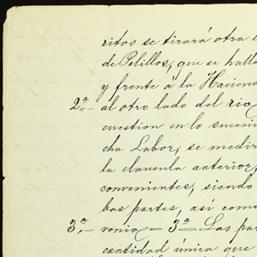 ritos se tirará otra
de Pelillos, que se halla
y frente á la Hacien
2ª.— al otro lado del rio
cuestion en lo sucesi
cha Labor, se medir
la clausula anterior,
convenientes, siendo
bas partes, así como
3ª.— venia = 3ª — Las par
cantidad única que